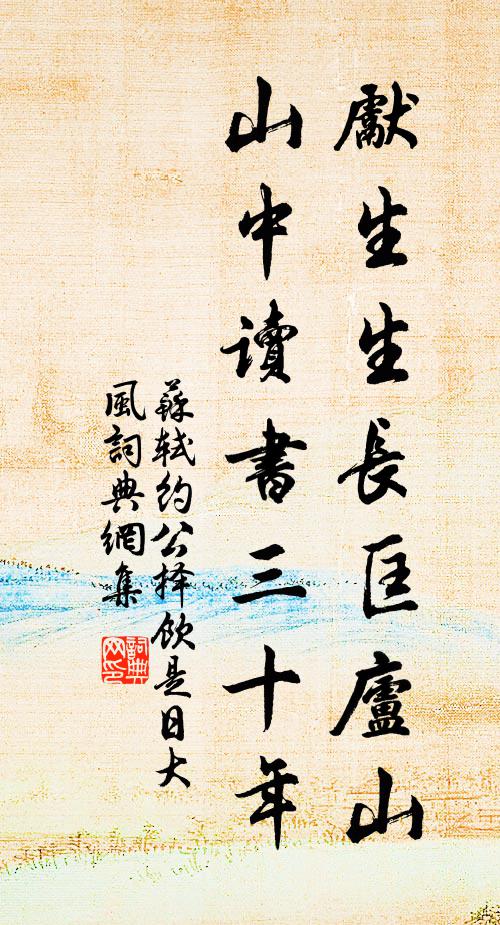 獻生生長匡廬山
山中讀書三十年
蘇軾約公择飲是日大
風詞典網集
詞典
网印